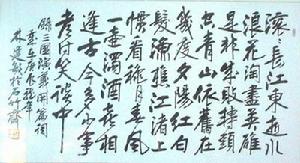 滚々長江東逝水
浪花淘盡英雄
是非成敗轉頭
空青山依舊在
幾度夕陽紅白
髮漁樵江渚上
慣看秋月春風
一壺濁酒喜相
逢古今多少事
都付笑談中
錄三國演義開篇詞
庚辰龍年
於石竹齋